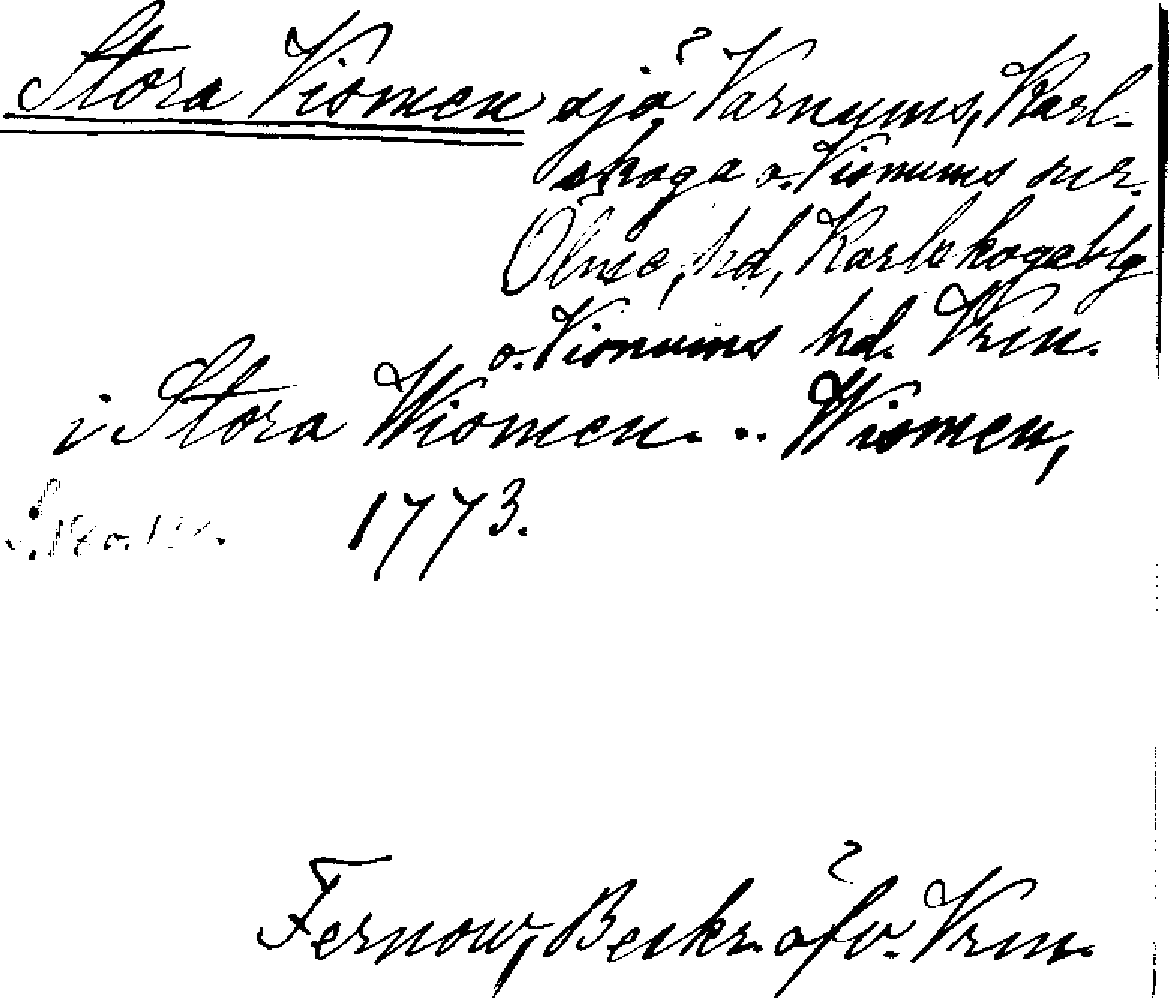 Stora Vismen sjö Varnums, Karl-
skoga o. Visnums snr.
Ölme, hd, Karlskogablg
o. Visnums hd. Vrm.
i Stora Wismen. .. Wismen,
1773.
Fernow, Beskr. öfv. Vrm.